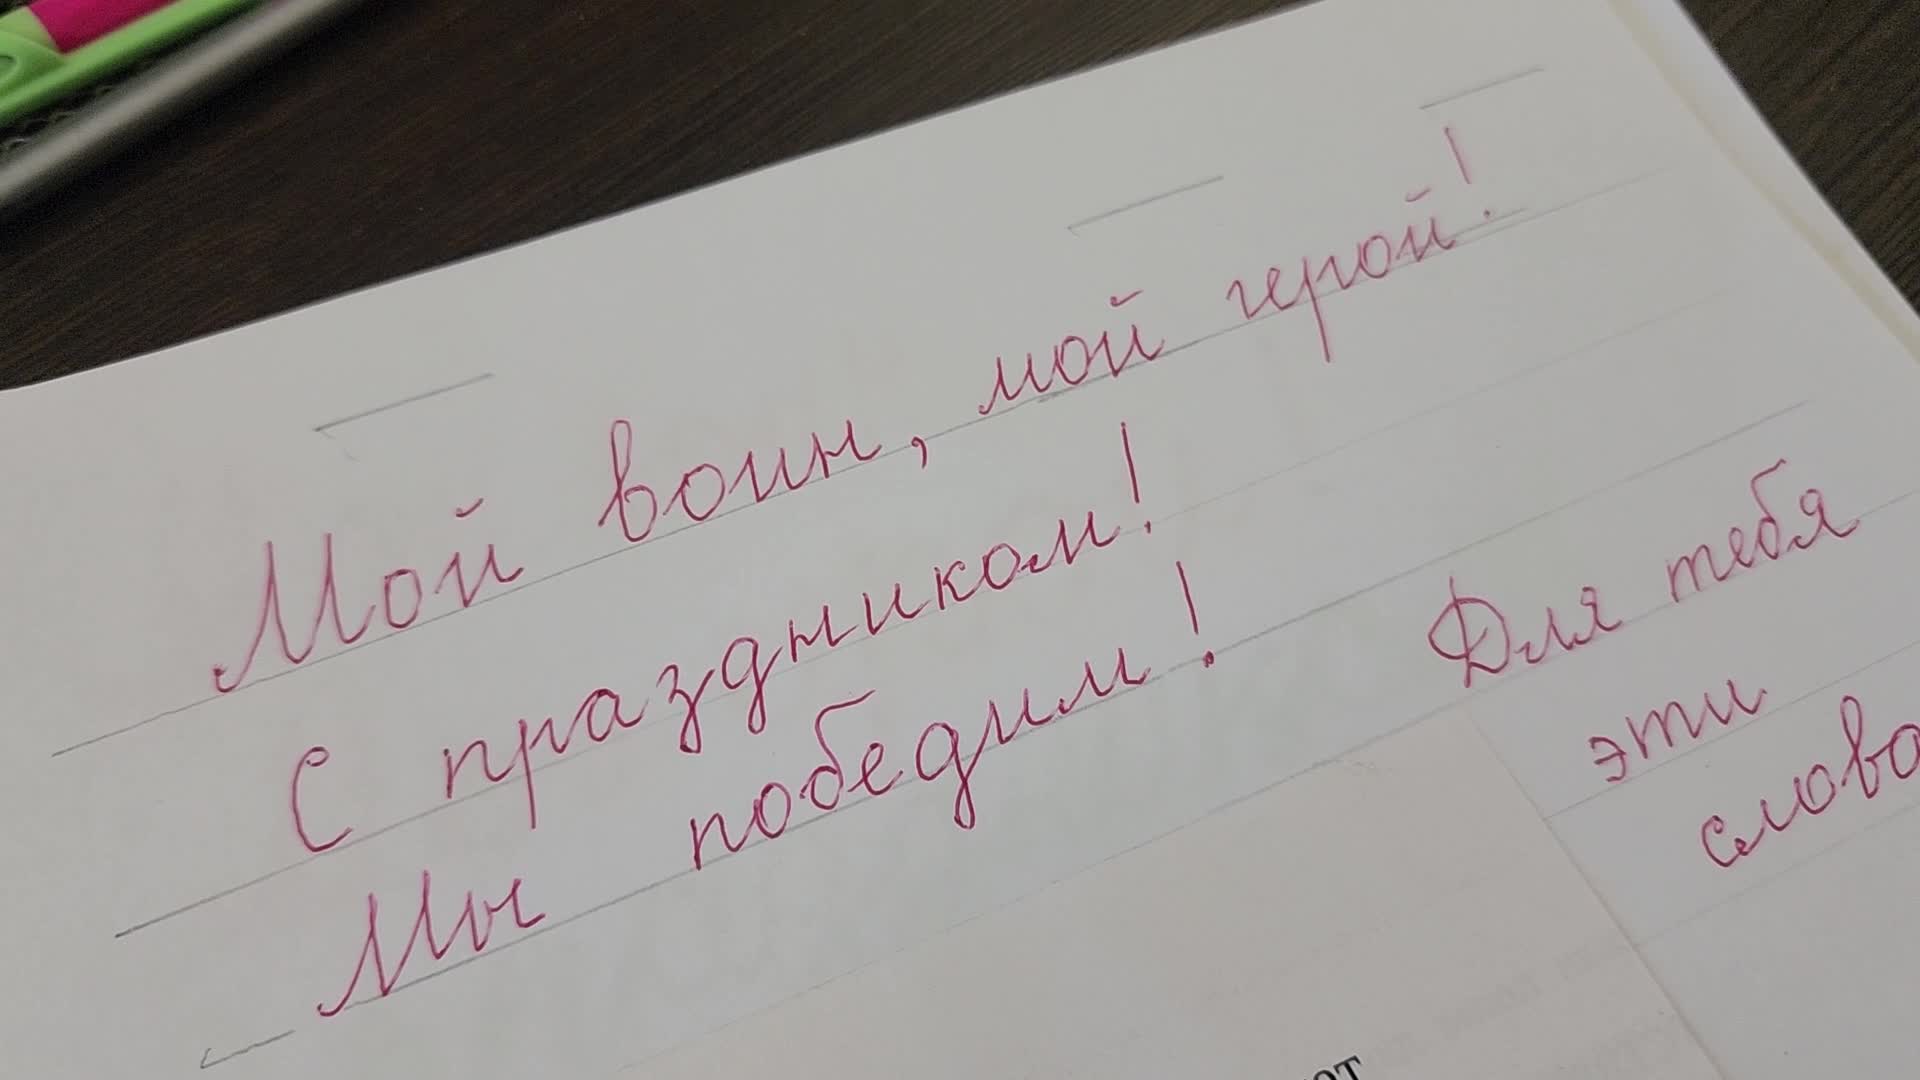 Мой воин, мой герой!
С праздником!
Мы победим!
Для тебя
эти
слова